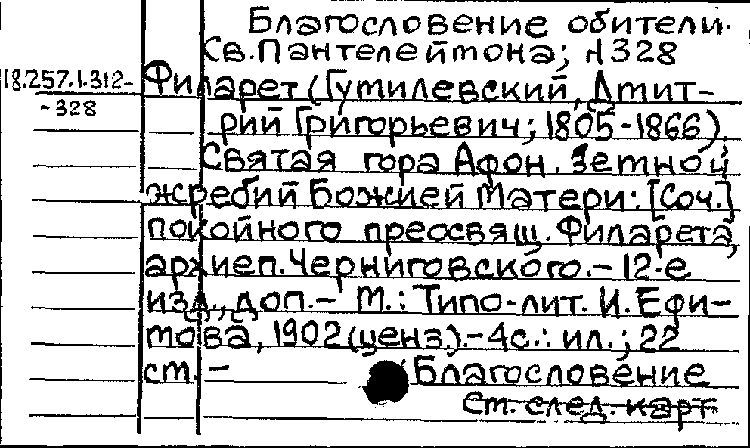 Благословение обители.
Св. Пантелеймона; №328
18.257.1.312- Филарет (Гумилевский, Дмит-
-328
рий Григорьевич; 1805-1866).
Святая гора Афон. Земной
жребий Божией Матери: [Соч.]
покойного преосвящ. Филарета,
архиеп. Черниговского. - 12-е
изд., доп. - М.: Типо-лит. И. Ефи-
мова, 1902 (ценз.). - 4с.: ил.; 22
см. - (Благословение
См. след. карт